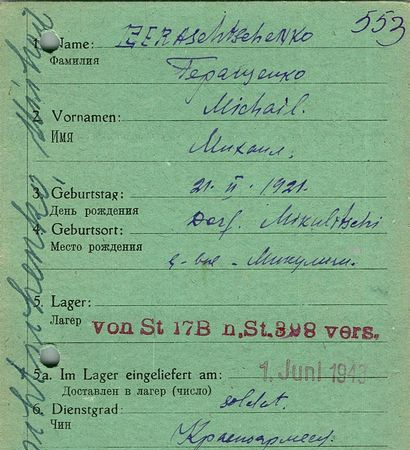 553
1. Name: GERAschtschenko
Фамилия
Геращенко
2. Vornamen: Michail.
Имя
Михаил.
3. Geburtstag: 21. II. 1921.
День рождения
4. Geburtsort: Dorf. Mikulitschi
Место рождения
д-вое - Микуличи.
5. Lager:
Лагерь
von St 17B n. St. 398 vers.
5a. Im Lager eingeliefert am: 1. Juni 1943
Доставлен в лагерь (число)
6. Dienstgrad: soldat.
Чин
Красноармеец